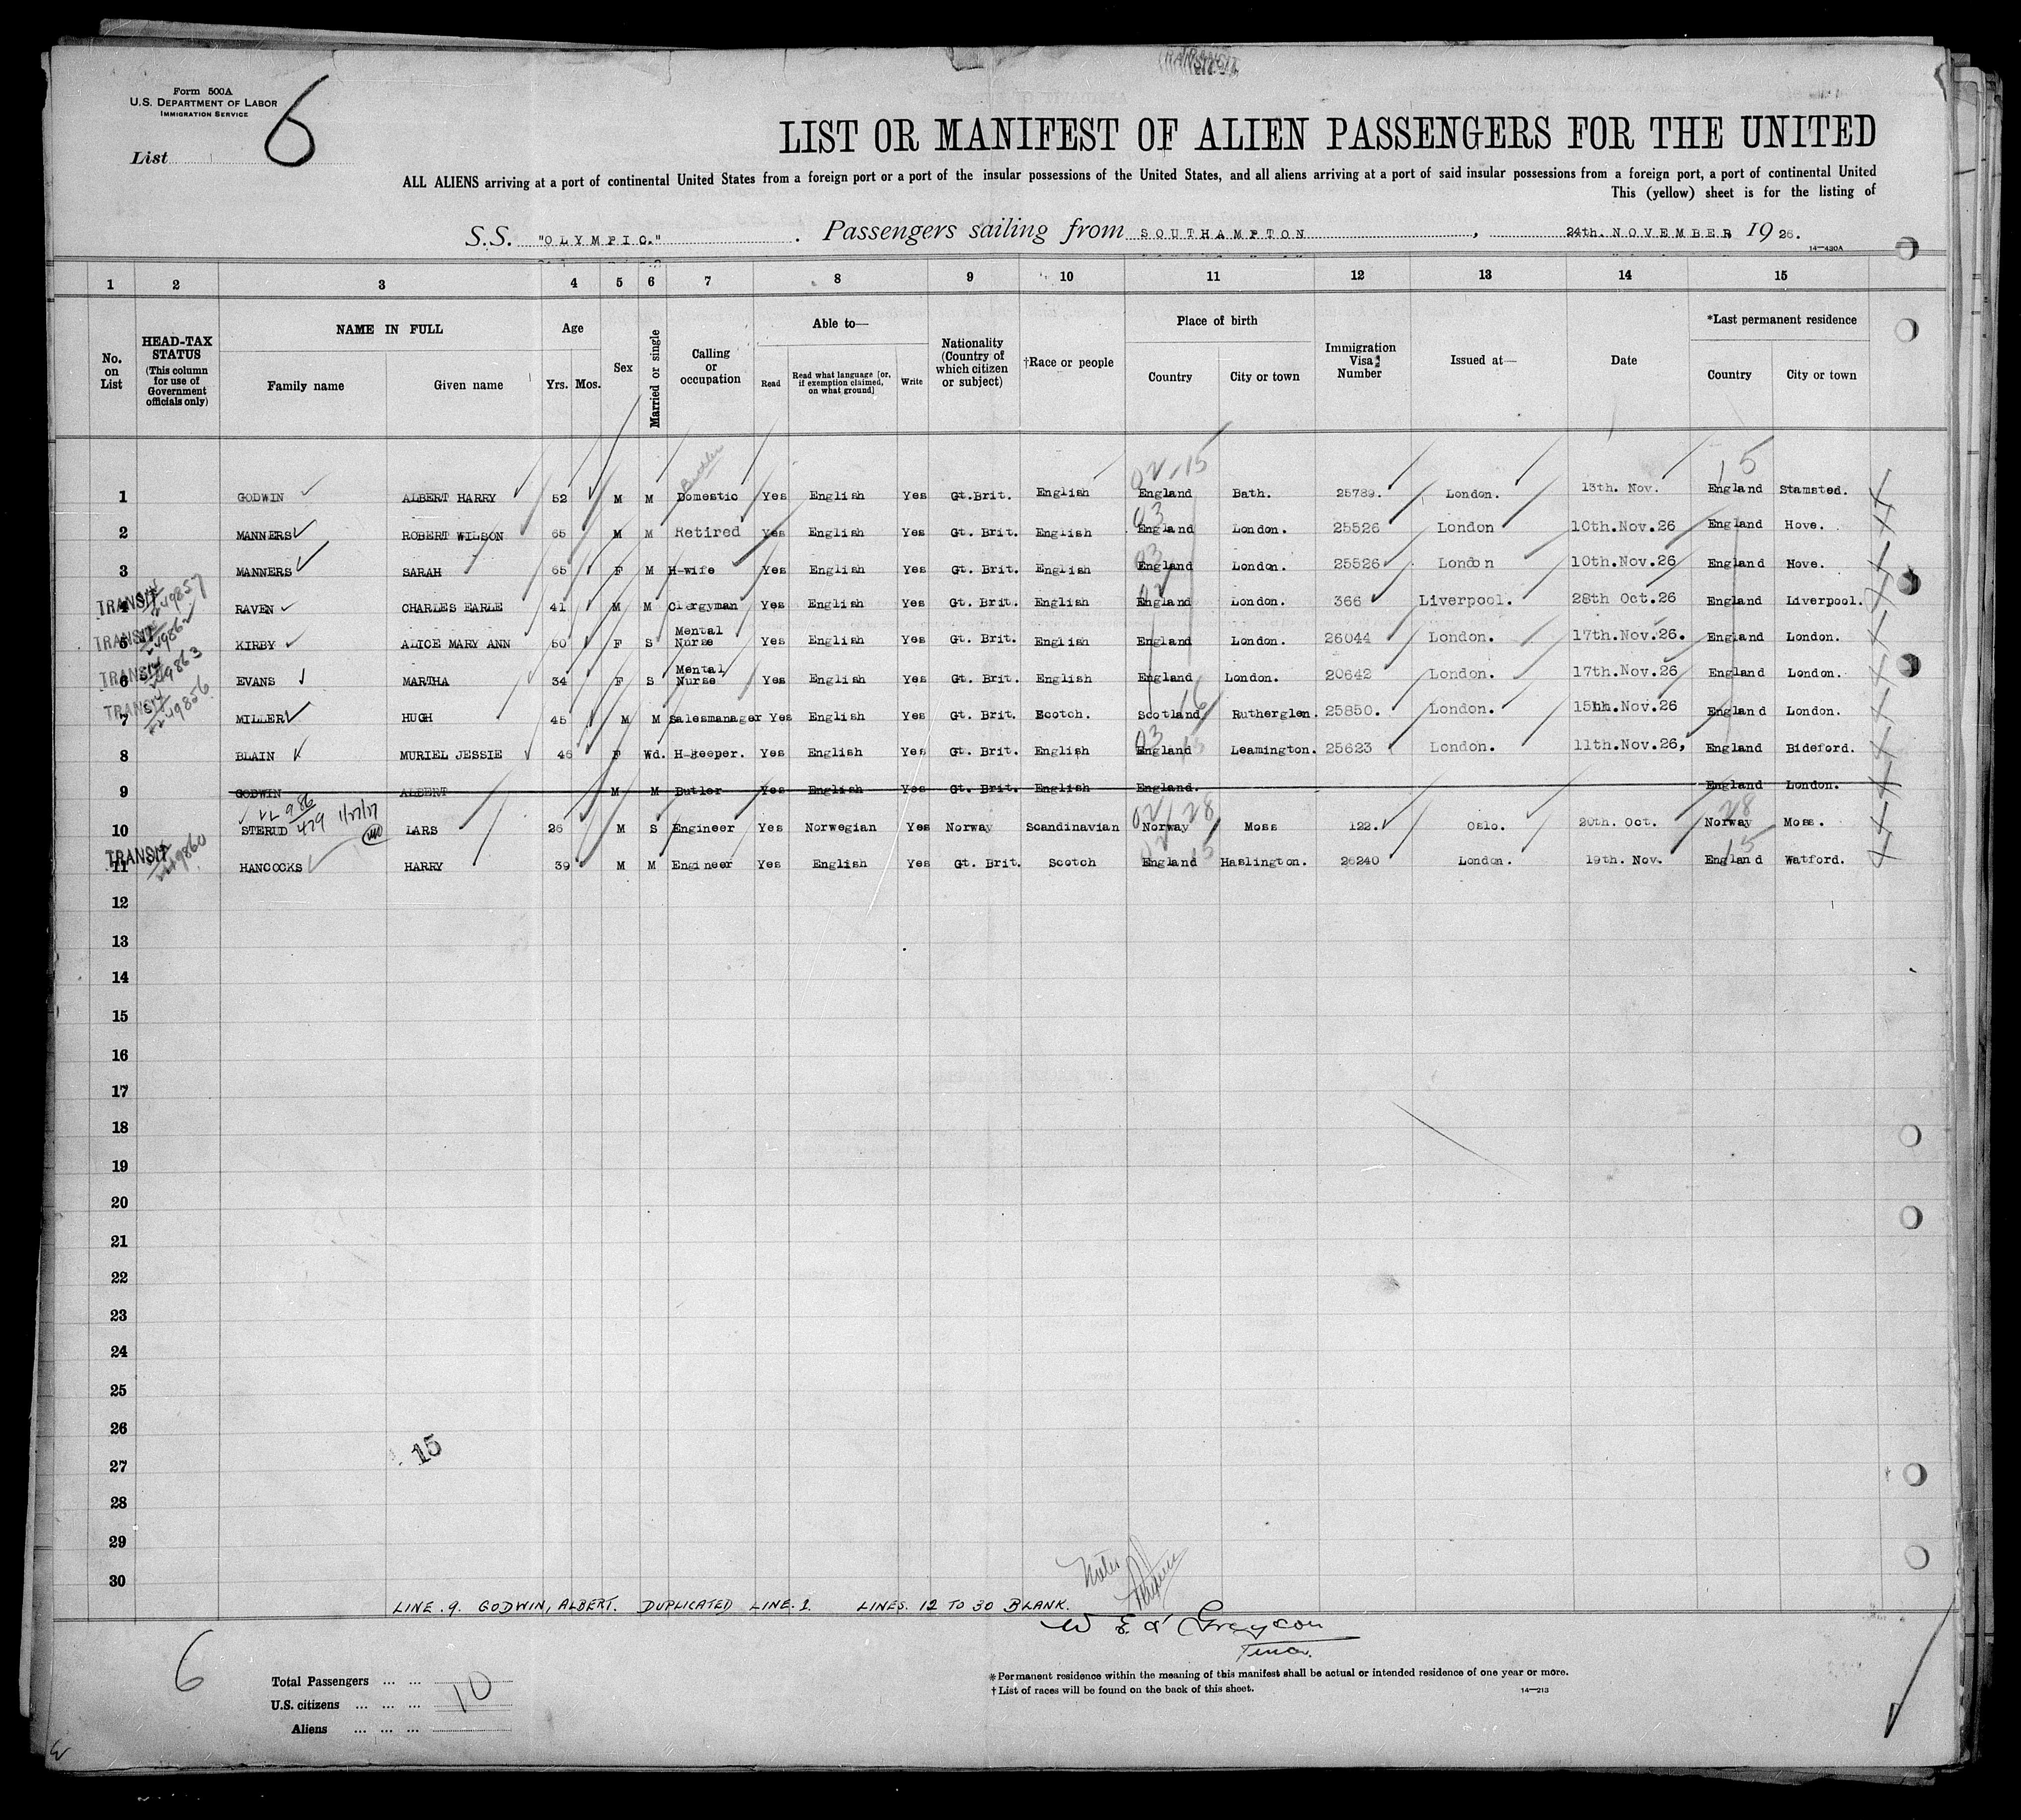 TRANSIT
Form 500A
U.S. DEPARTMENT OF LABOR
IMMIGRATION SERVICE
List 6
LIST OR MANIFEST OF ALIEN PASSENGERS FOR THE UNITED
ALL ALIENS arriving at a port of continental United States from a foreign port or a port of the insular possessions of the United States, and all aliens arriving at a port of said insular possessions from a foreign port, a port of continental United
This (yellow) sheet is for the listing of
S.S. "OLYMPIC." Passengers sailing from SOUTHAMPTON, 24th. NOVEMBER 1926.
14—430A
1 2 3 4 5 6 7 8 9 10 11 12 13 14 15
No. on List
HEAD-TAX STATUS (This column for use of Government officials only)
NAME IN FULL
Family name Given name
Age
Yrs. Mos.
Sex
Married or single
Calling or occupation
Able to—
Read Read what language [or, if exemption claimed, on what ground] Write
Nationality (Country of which citizen or subject)
†Race or people
Place of birth
Country City or town
Immigration Visa Number
Issued at—
Date
*Last permanent residence
Country City or town
02-15 15
1 GODWIN ALBERT HARRY 52 M M Domestic Yes English Yes Gt.Brit. English England Bath. 25789. London. 13th. Nov. England Stamsted.
03
2 MANNERS ROBERT WILSON 65 M M Retired Yes English Yes Gt. Brit. English England London. 25526 London 10th.Nov.26 England Hove.
03
3 MANNERS SARAH 65 F M H-wife Yes English Yes Gt. Brit. English England London. 25526 London 10th.Nov.26 England Hove.
TRANSIT 49857
4 RAVEN CHARLES EARLE 41 M M Clergyman Yes English Yes Gt. Brit. English England London. 366 Liverpool. 28th Oct.26 England Liverpool.
TRANSIT
5 KIRBY ALICE MARY ANN 50 F S Mental Nurse Yes English Yes Gt. Brit. English England London. 26044 London. 17th.Nov.26. England London.
TRANSIT 49863
6 EVANS MARTHA 34 F S Mental Nurse Yes English Yes Gt. Brit. English England London. 20642 London. 17th.Nov.26 England London.
TRANSIT 49856
7 MILLER HUGH 45 M M Salesmanager Yes English Yes Gt. Brit. Scotch. Scotland Rutherglen. 25850. London. 15th.Nov.26 England London.
03
8 BLAIN MURIEL JESSIE 46 F Wd. H-keeper. Yes English Yes Gt. Brit. English England Leamington. 25623 London. 11th.Nov.26, England Bideford.
9 GODWIN ALBERT M M Butler Yes English Yes Gt. Brit. English England. England London.
986 429 1/27/27 02 28 28
10 STERUD LARS 26 M S Engineer Yes Norwegian Yes Norway Scandinavian Norway Moss 122. Oslo. 20th. Oct. Norway Moss.
TRANSIT 49860 15 15
11 HANCOCKS HARRY 39 M M Engineer Yes English Yes Gt. Brit. Scotch England Haslington. 26240 London. 19th. Nov. England Watford.
12
13
14
15
16
17
18
19
20
21
22
23
24
25
26
15
27
28
29
30
LINE. 9. GODWIN, ALBERT. DUPLICATED LINE. 1. LINES. 12 TO 30 BLANK.
6
Total Passengers ... ...
U.S. citizens ... ... ... 10
Aliens ... ... ...
*Permanent residence within the meaning of this manifest shall be actual or intended residence of one year or more.
†List of races will be found on the back of this sheet.
14—213